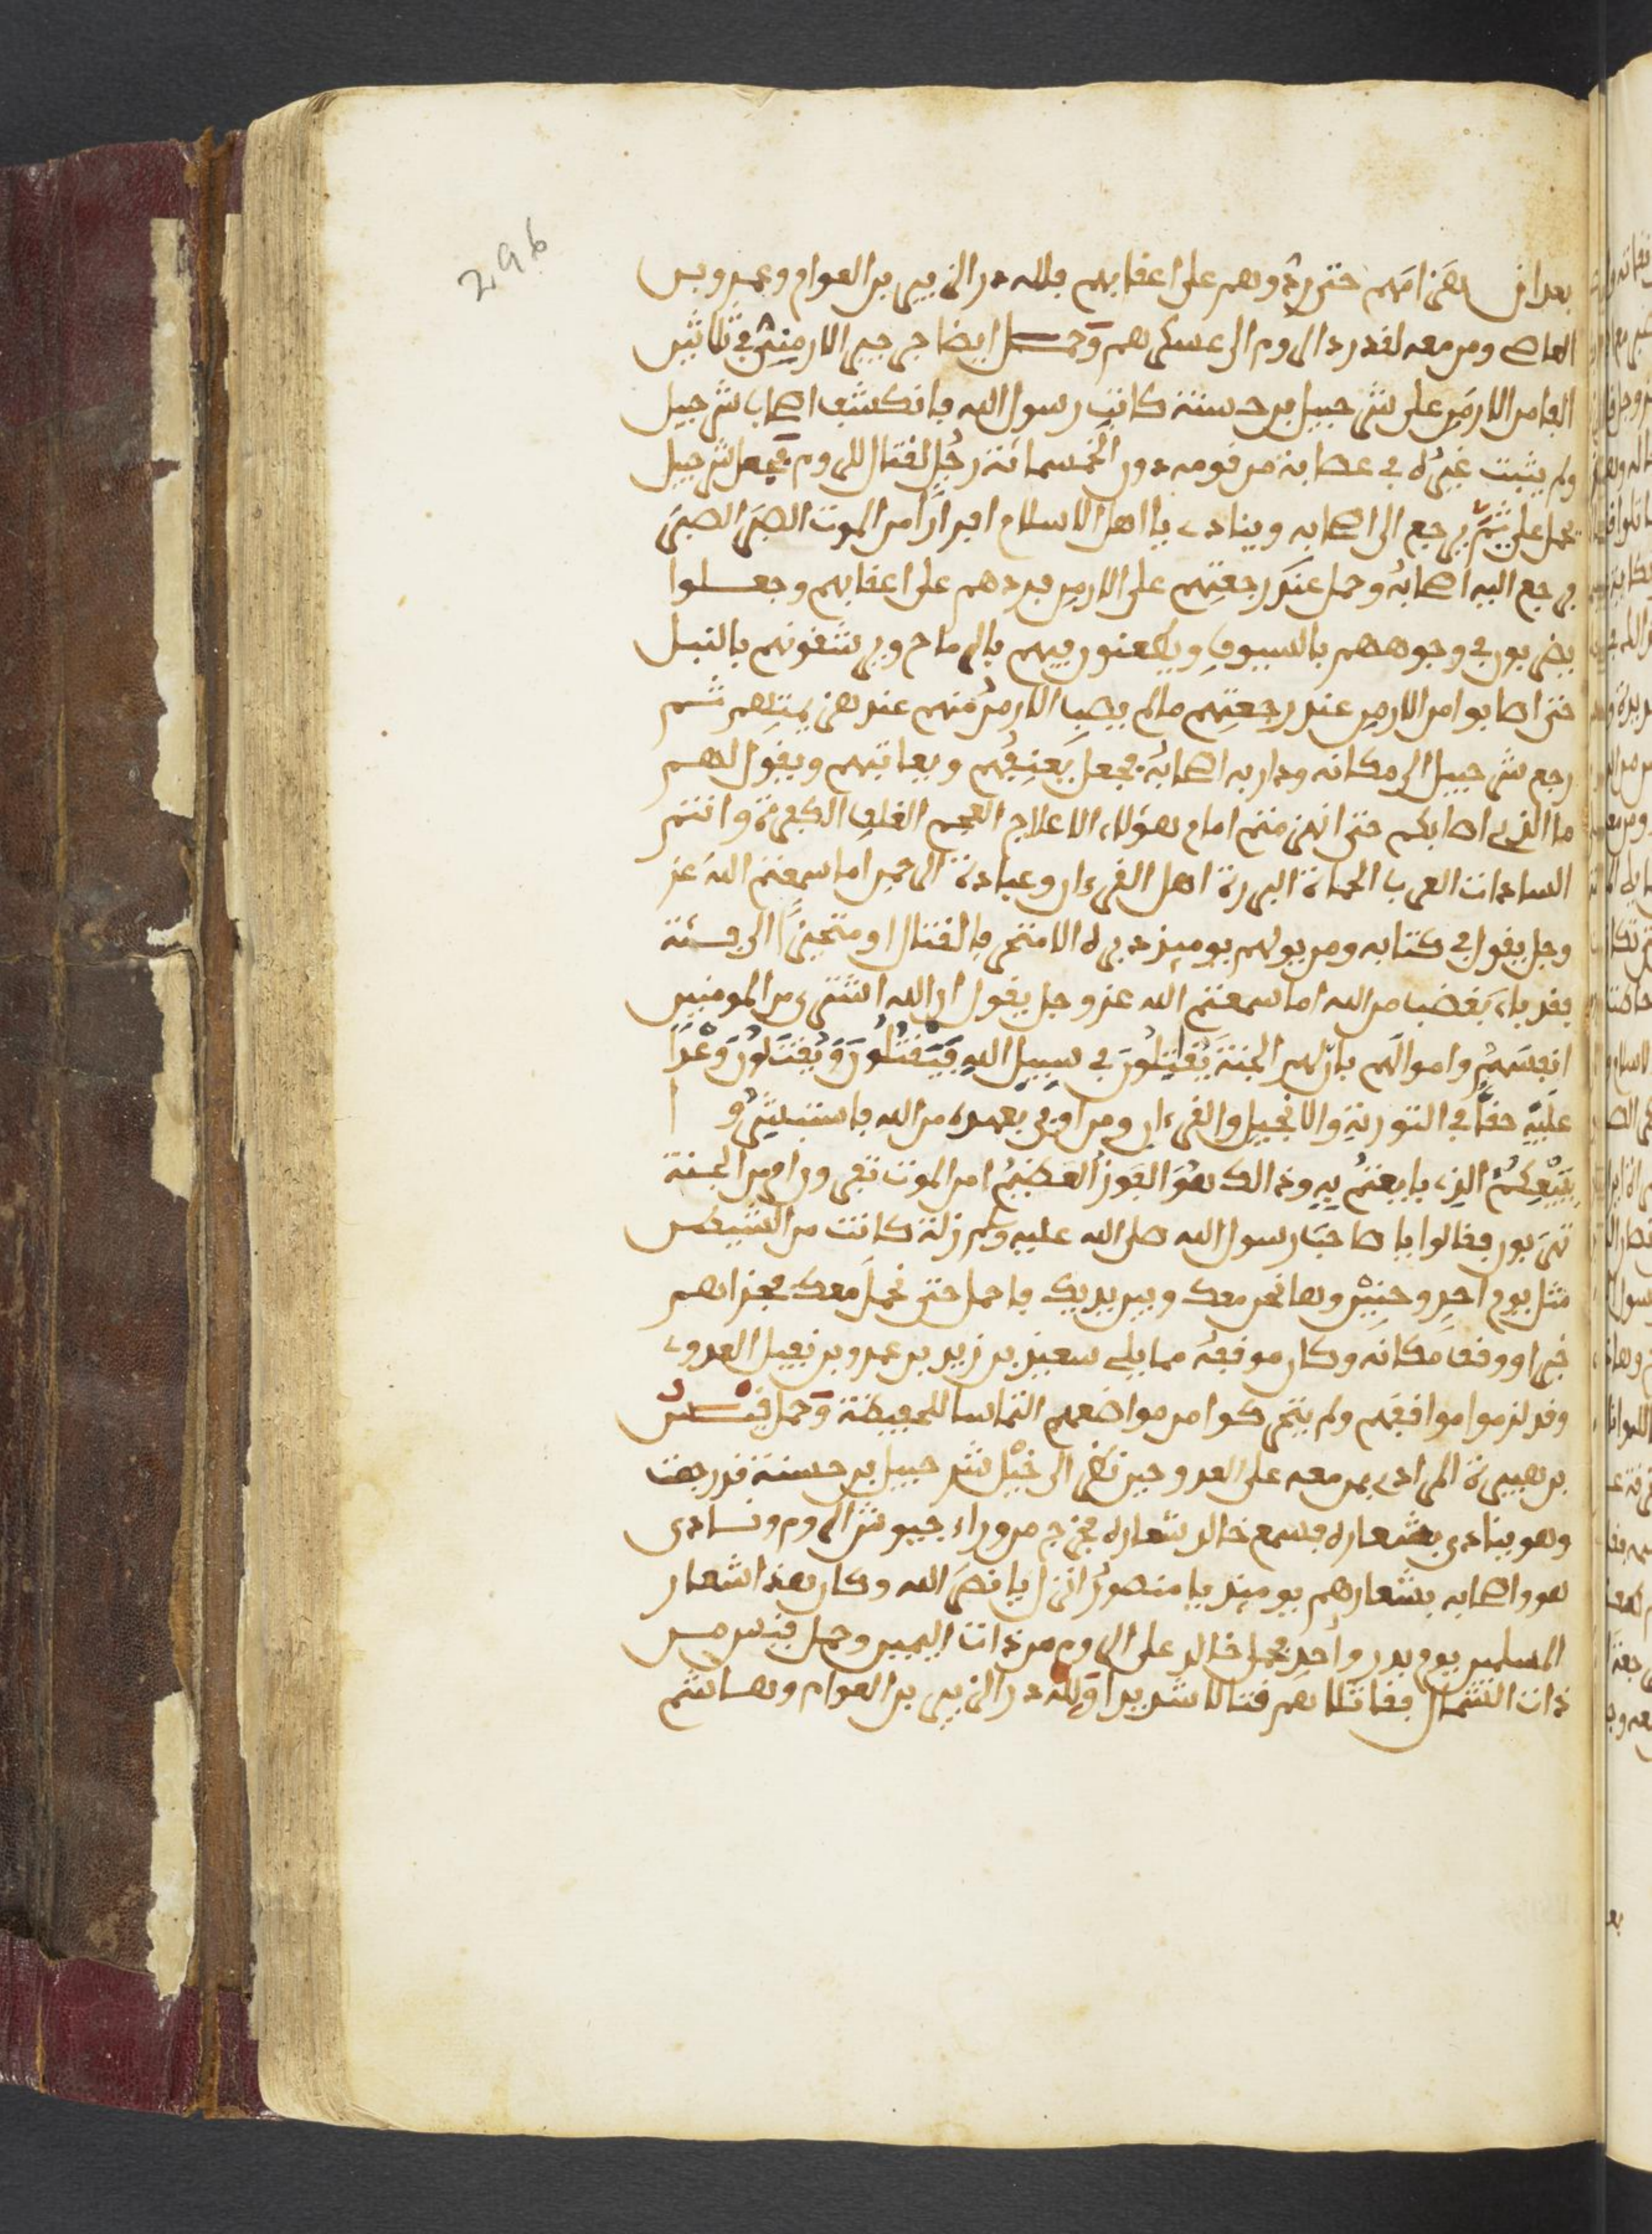 296
بعد انهزامهم حتى ردوهم على اعقابهم فلله در الزبير بن العوام وعمرو بن
العاص ومن معه لقد ردا الروم الى عسكرهم وحمل ايضا جرجير الارمني في ثلاثين
الفا من الارمن على شرحبيل بن حسنة كاتب رسول الله فانكشف اصحاب شرحبيل
ولم يثبت غيره في عصابة من قومه دون الخمسمائة رجل لقتال الروم فجعل شرحبيل
يحمل على ثم يرجع الى اصحابه وينادي يا اهل الاسلام افرارا من الموت الصبر الصبر
فرجع اليه اصحابه وحمل عند رجعتهم على الارمن فردهم على اعقابهم وجعلوا
يضربون في وجوههم بالسيوف ويطعنون فيهم بالرماح ويرشقونهم بالنبل
حتى اصابوا من الارمن عند رجعتهم ما لم يصب الارمن منهم عند هزيمتهم ثم
رجع شرحبيل الى مكانه ودار به اصحابه فجعل يعنفهم ويعاتبهم ويقول لهم
ما الذي اصابكم حتى انهزمتم امام هؤلاء الاعلاج العجم الغلف الكفرة وانتم
السادات العرب الحماة البررة اهل القرءان وعبادة الرحمن اما سمعتم الله عز
وجل يقول في كتابه ومن يولهم يومئذ دبره الا متحرفا لقتال او متحيزا الى فئة
فقد باء بغضب من الله اما سمعتم الله عز وجل يقول ان الله اشترى من المومنين
انفسهم واموالهم بان لهم الجنة يقتلون في سبيل الله فيقتلون ويقتلون وعدا
عليه حقا في التورية والانجيل والقرءان ومن اوفى بعهده من الله فاستبشروا
ببيعكم الذي بايعتم به وذالك هو الفوز العظيم امن الموت تفرون ام من الجنة
تهربون فقالوا يا صاحب رسول الله صلى الله عليه وسلم زلة كانت من الشيطن
مثل يوم احد وحنين وها نحن معك وبين يديك فاحمل حتى نحمل معك فجزاهم
خيرا ووقف مكانه وكان موقفه مما يلي سعيد بن زيد بن عمرو بن نفيل العدوي
وقد لزموا مواقفهم ولم يتحركوا من مواضعهم التماسا للحفيظة وحمل قيس
بن هبيرة المرادي بمن معه على العدو حين نظر الى خيل شرحبيل بن حسنة قد رجعت
وهو ينادي بشعاره فسمع خالد شعاره فخرج من وراء جيوش الروم ونادى
هو واصحابه بشعارهم يومئذ يا منصور انزل يا نصر الله وكان هذا شعار
المسلمين يوم بدر واحد فحمل خالد على الروم من ذات اليمين وحمل قيس من
ذات الشمال فقاتلاهم قتالا شديدا ولله در الزبير بن العوام وهاشم